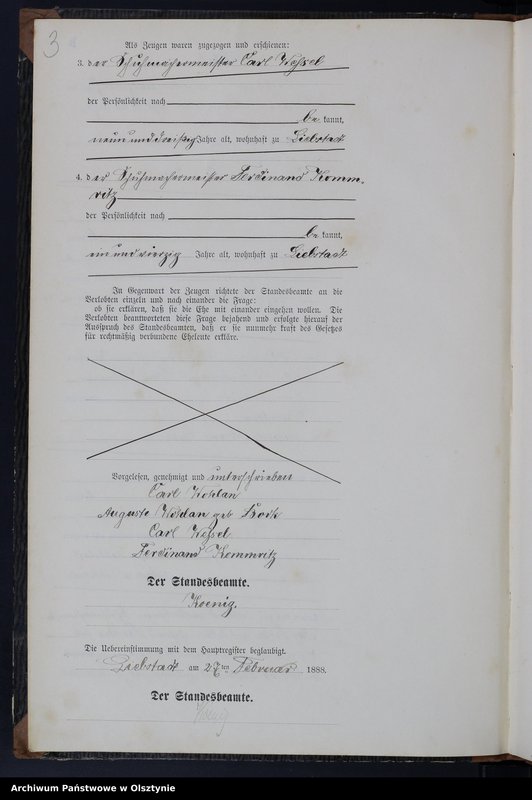 3
Als Zeugen waren zugezogen und erschienen:
3. der Schuhmachermeister Carl Wessel
der Persönlichkeit nach
be kannt,
neununddreißig Jahre alt, wohnhaft zu Liebstadt
4. der Schuhmachermeister Ferdinand Komm-
ritz
der Persönlichkeit nach
be kannt,
einundvierzig Jahre alt, wohnhaft zu Liebstadt
In Gegenwart der Zeugen richtete der Standesbeamte an die
Verlobten einzeln und nach einander die Frage:
ob sie erklären, daß sie die Ehe mit einander eingehen wollen. Die
Verlobten beantworteten diese Frage bejahend und erfolgte hierauf der
Ausspruch des Standesbeamten, daß er sie nunmehr kraft des Gesetzes
für rechtmäßig verbundene Eheleute erkläre.
Vorgelesen, genehmigt und unterschrieben
Carl Wohlan
Auguste Wohlan geb
Carl Wessel
Ferdinand Kommritz
Der Standesbeamte.
Koenig.
Die Uebereinstimmung mit dem Hauptregister beglaubigt.
Liebstadt am 27ten Februar 1888.
Der Standesbeamte.
Koenig
Archiwum Państwowe w Olsztynie